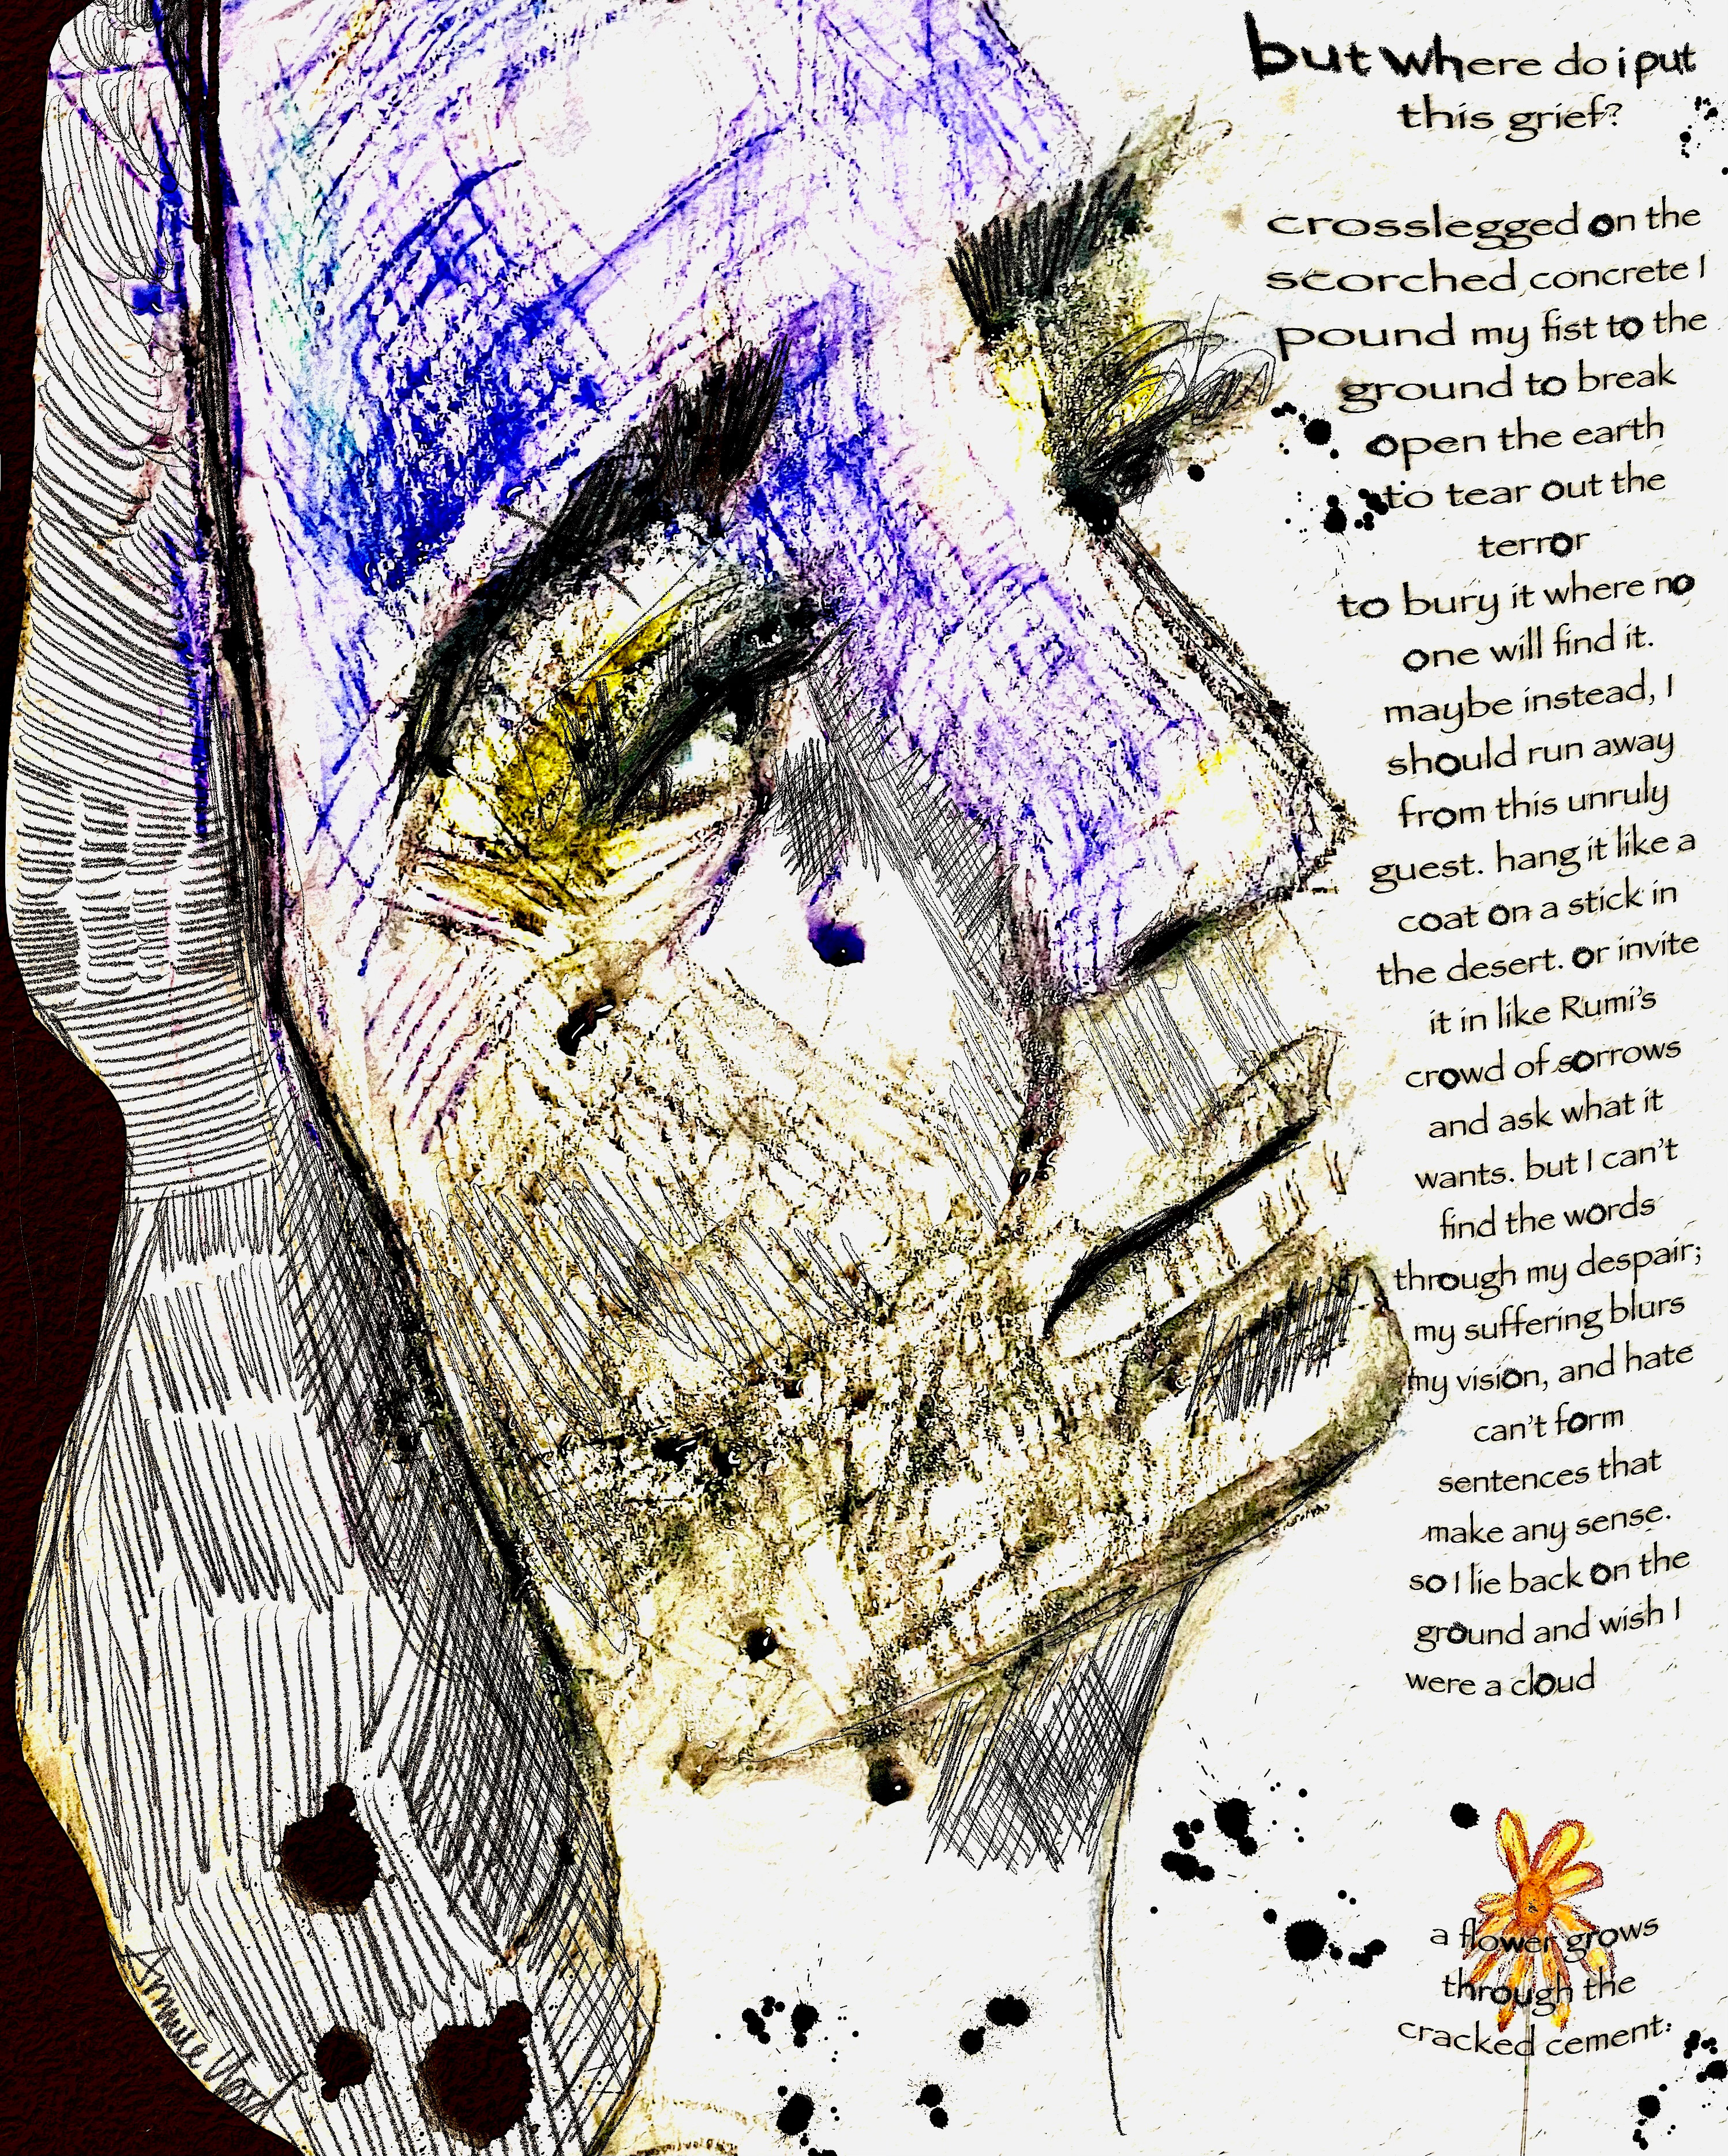 but where do i put
this grief?
crosslegged on the
scorched concrete I
pound my fist to the
ground to break
open the earth
to tear out the
terror
to bury it where no
one will find it.
maybe instead, I
should run away
from this unruly
guest. hang it like a
coat on a stick in
the desert. or invite
it in like Rumi's
crowd of sorrows
and ask what it
wants. but I can't
find the words
through my despair;
my suffering blurs
my vision, and hate
can't form
sentences that
make any sense.
so I lie back on the
ground and wish I
were a cloud
a flower grows
through the
cracked cement: